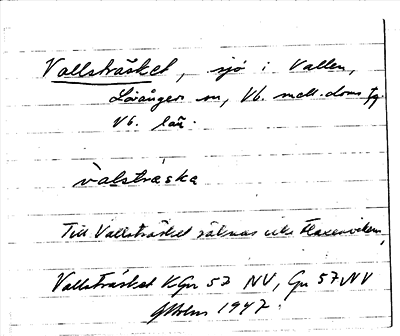 Vallsträsket, sjö i Vallen,
Lövångers sn, Vb. mell. doms tg.
Vb. län.
valstraska
Till Vallsträsket räknas icke Flarkerviken,
Vallsträsket KGpr 57 NV, Gpr 57 NV
GHolm 1947.